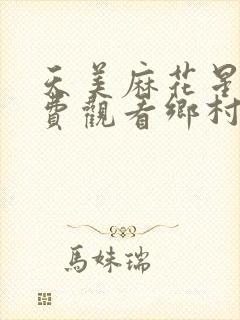 天美麻花星
費觀看鄉村
馬妹瑞